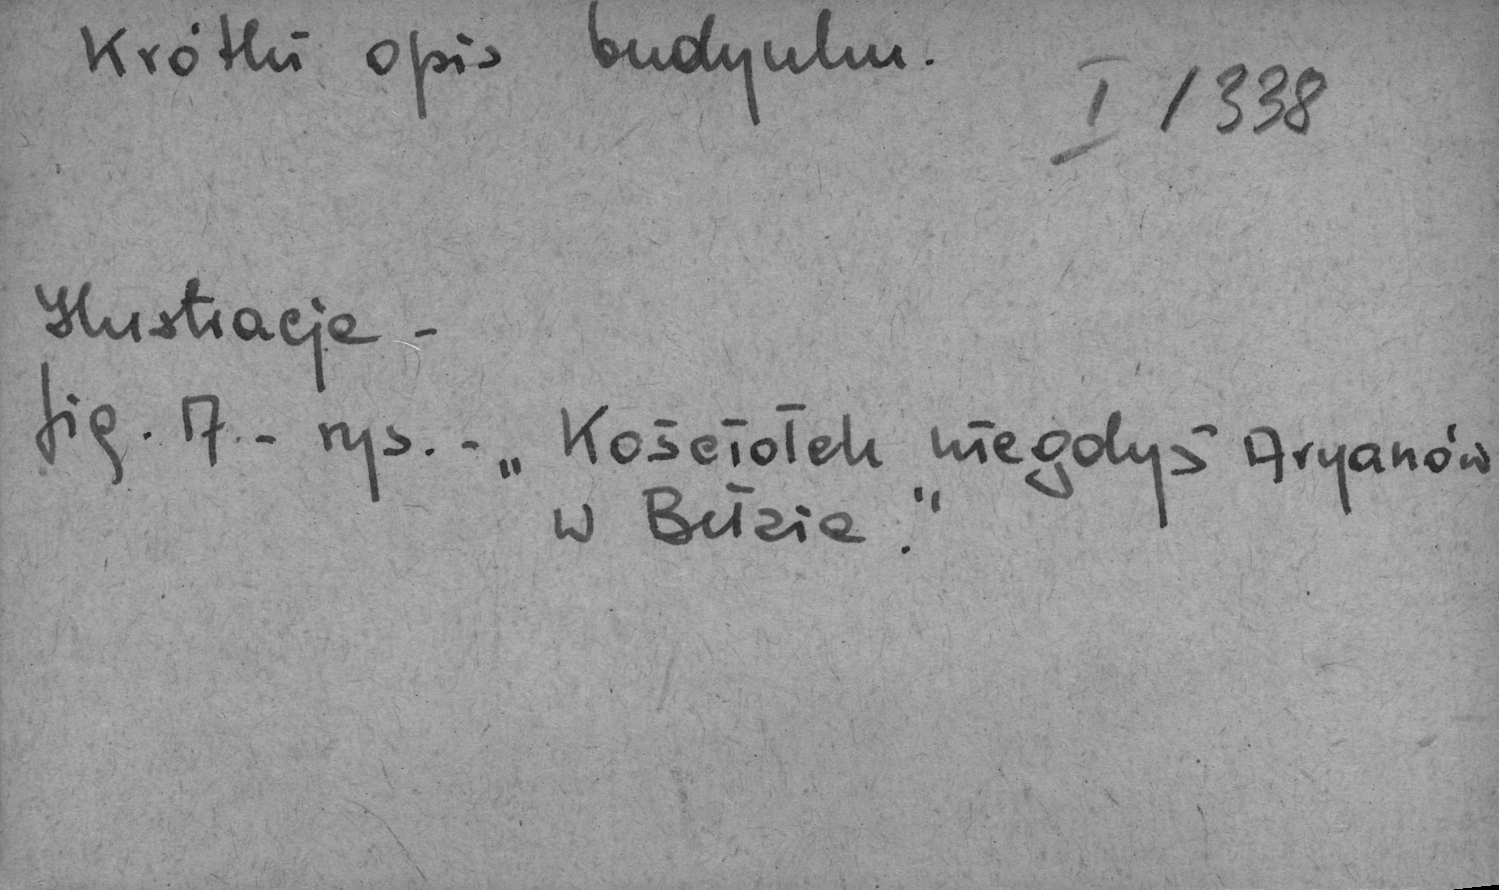 Krótki opis budynku.
I / 338
Ilustracje -
fig. 7. - rys. - „Kościołek niegdyś Aryanów
w Bełzie."